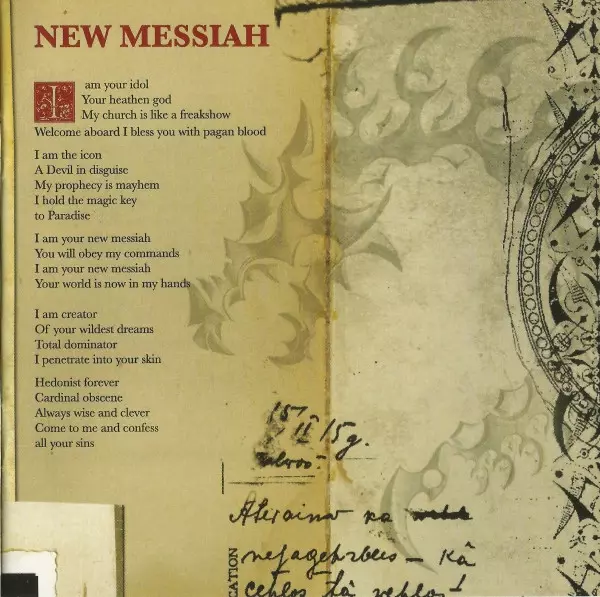 NEW MESSIAH
I am your idol
Your heathen god
My church is like a freakshow
Welcome aboard I bless you with pagan blood
I am the icon
A Devil in disguise
My prophecy is mayhem
I hold the magic key
to Paradise
I am your new messiah
You will obey my commands
I am your new messiah
Your world is now in my hands
I am creator
Of your wildest dreams
Total dominator
I penetrate into your skin
Hedonist forever
Cardinal obscene
Always wise and clever
Come to me and confess
all your sins
15/II 15g.
CATION